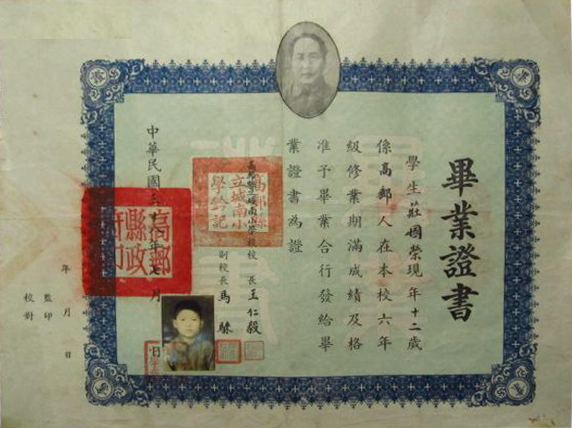 畢業證書
學生莊國榮現年十二歲
係高郵人在本校六年
級修業期滿成績及格
准予畢業合行發給畢
業證書為證
校長王仁毅
副校長馬騄
高郵縣
立城南小
學鈐記
中華民國三十
年七月
日
高郵
縣政
府印
年 月 日
監印
校對